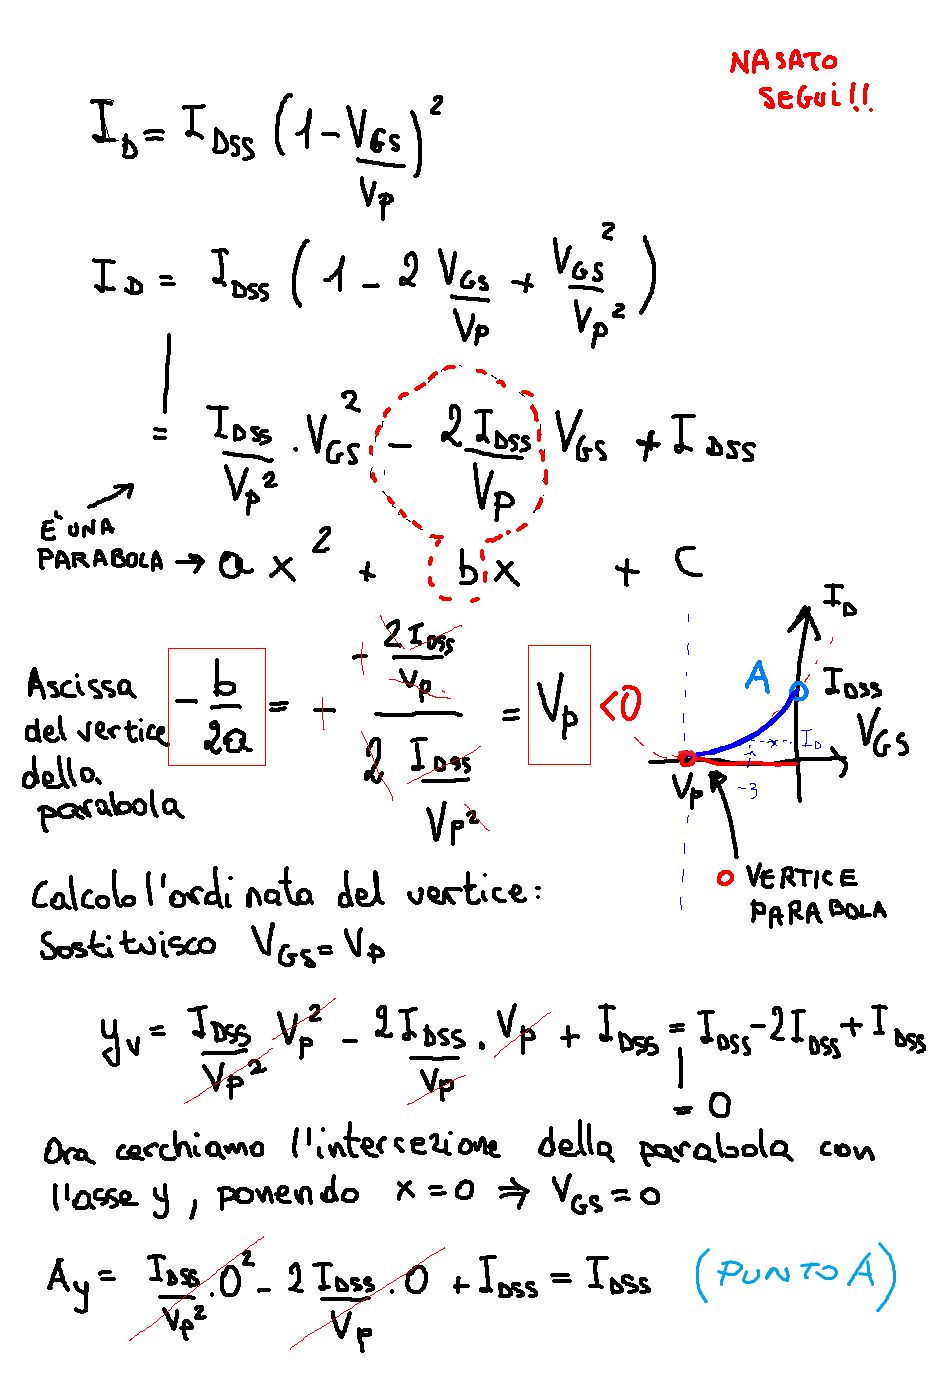 NASATO
SEGUI!!
I_D = I_DSS (1 - V_GS/V_P)^2
I_D = I_DSS (1 - 2 V_GS/V_P + V_GS^2/V_P^2)
= I_DSS/V_P^2 · V_GS^2 - 2 I_DSS/V_P V_GS + I_DSS
E' UNA
PARABOLA → a x^2 + b x + c
Ascissa
del vertice
della
parabola
- b/2a = + (+ 2 I_DSS/V_P)/(2 I_DSS/V_P^2) = V_P <0
I_D
A
I_DSS
V_GS
I_D
-3
V_P
VERTICE
PARABOLA
Calcolo l'ordinata del vertice:
Sostituisco V_GS = V_P
y_v = I_DSS/V_P^2 V_P^2 - 2 I_DSS/V_P · V_P + I_DSS = I_DSS - 2 I_DSS + I_DSS
= 0
Ora cerchiamo l'intersezione della parabola con
l'asse y, ponendo x = 0 ⇒ V_GS = 0
A_y = I_DSS/V_P^2 · 0^2 - 2 I_DSS/V_P · 0 + I_DSS = I_DSS (PUNTO A)